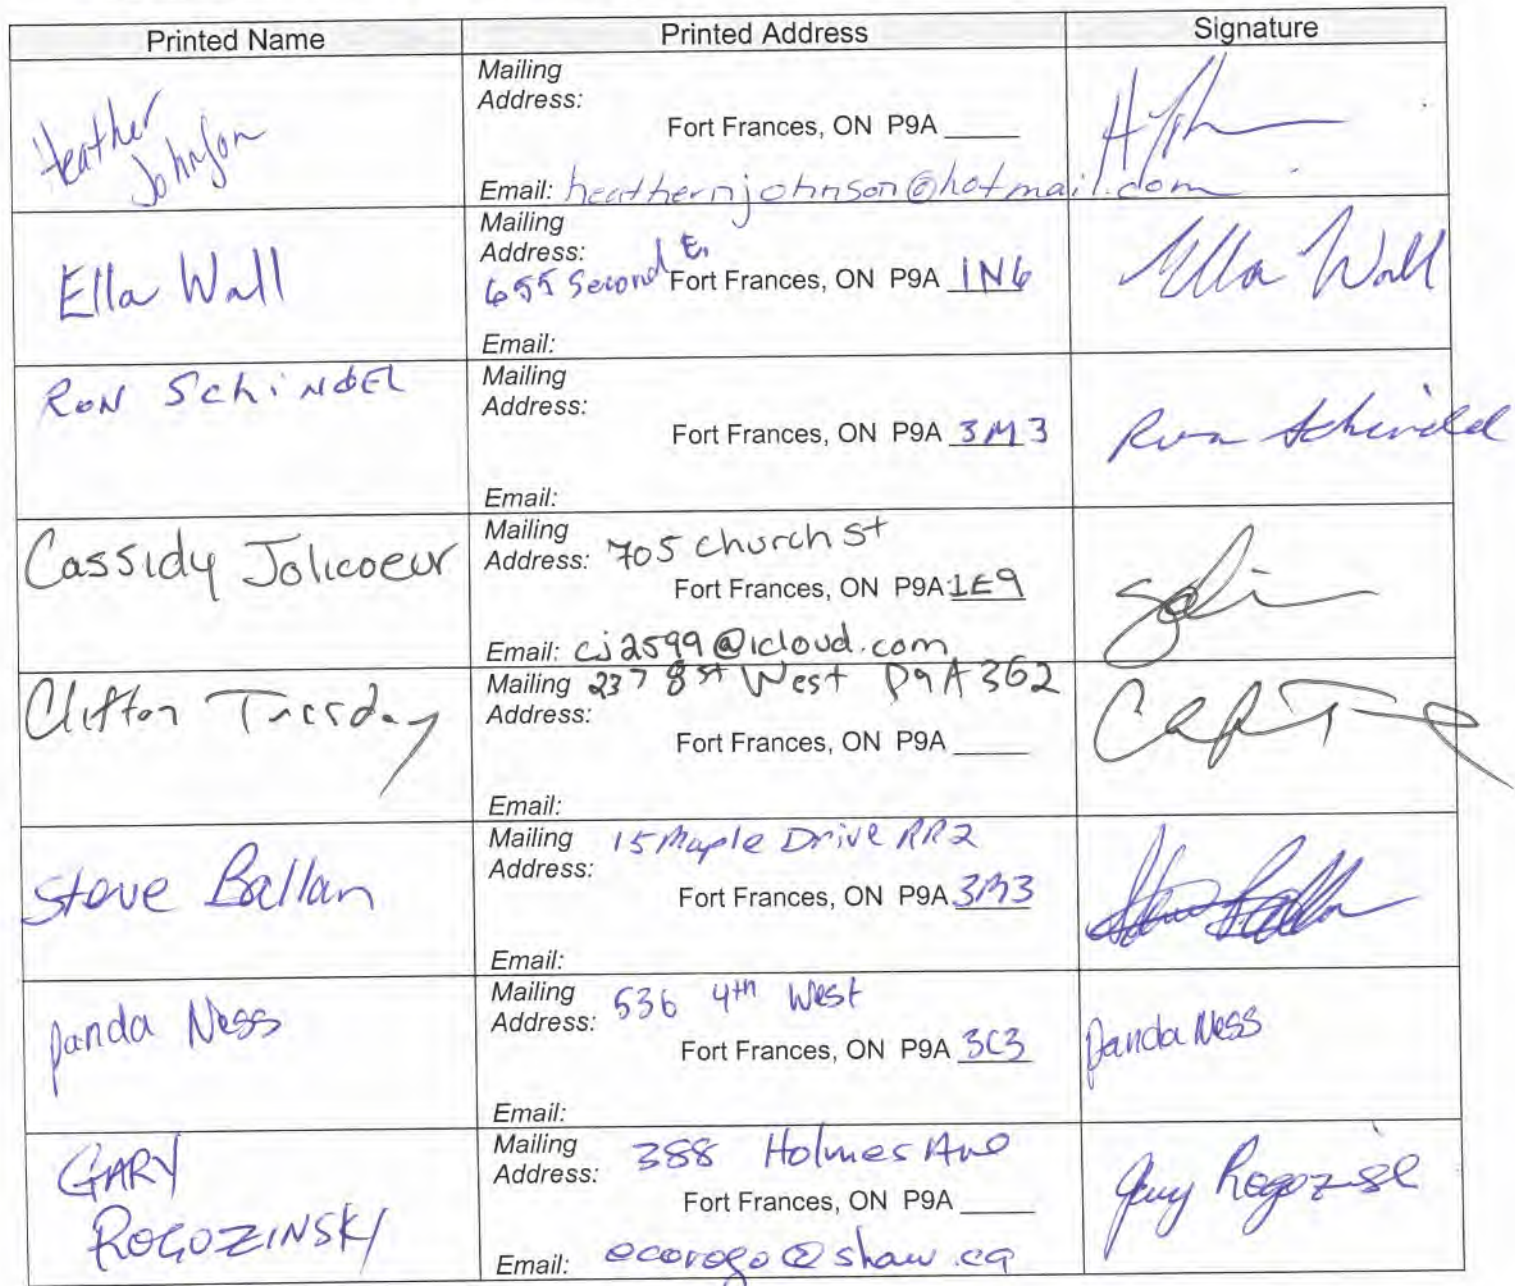 Printed Name Printed Address Signature
Heather
Johnson
Mailing
Address:
Fort Frances, ON P9A _____
Email: heathernjohnson@hotmail.com
Ella Wall
Mailing
Address:
655 Second E. Fort Frances, ON P9A 1N6
Email:
Ella Wall
RON SchiNdEL
Mailing
Address:
Fort Frances, ON P9A 3M3
Email:
Ron Schindel
Cassidy Jolicoeur
Mailing
Address: 705 Church St
Fort Frances, ON P9A 1E9
Email: cj2599@icloud.com
Clifton Tuesday
Mailing 237 8st West P9A 3G2
Address:
Fort Frances, ON P9A _____
Email:
Steve Ballan
Mailing 15 Maple Drive RR2
Address:
Fort Frances, ON P9A 3M3
Email:
Steve Ballan
Panda Ness
Mailing
Address: 536 4th West
Fort Frances, ON P9A 3C3
Email:
Panda Ness
GARY
ROGOZINSKI
Mailing
Address: 388 Holmes Ave
Fort Frances, ON P9A _____
Email: ecorogo@shaw.ca